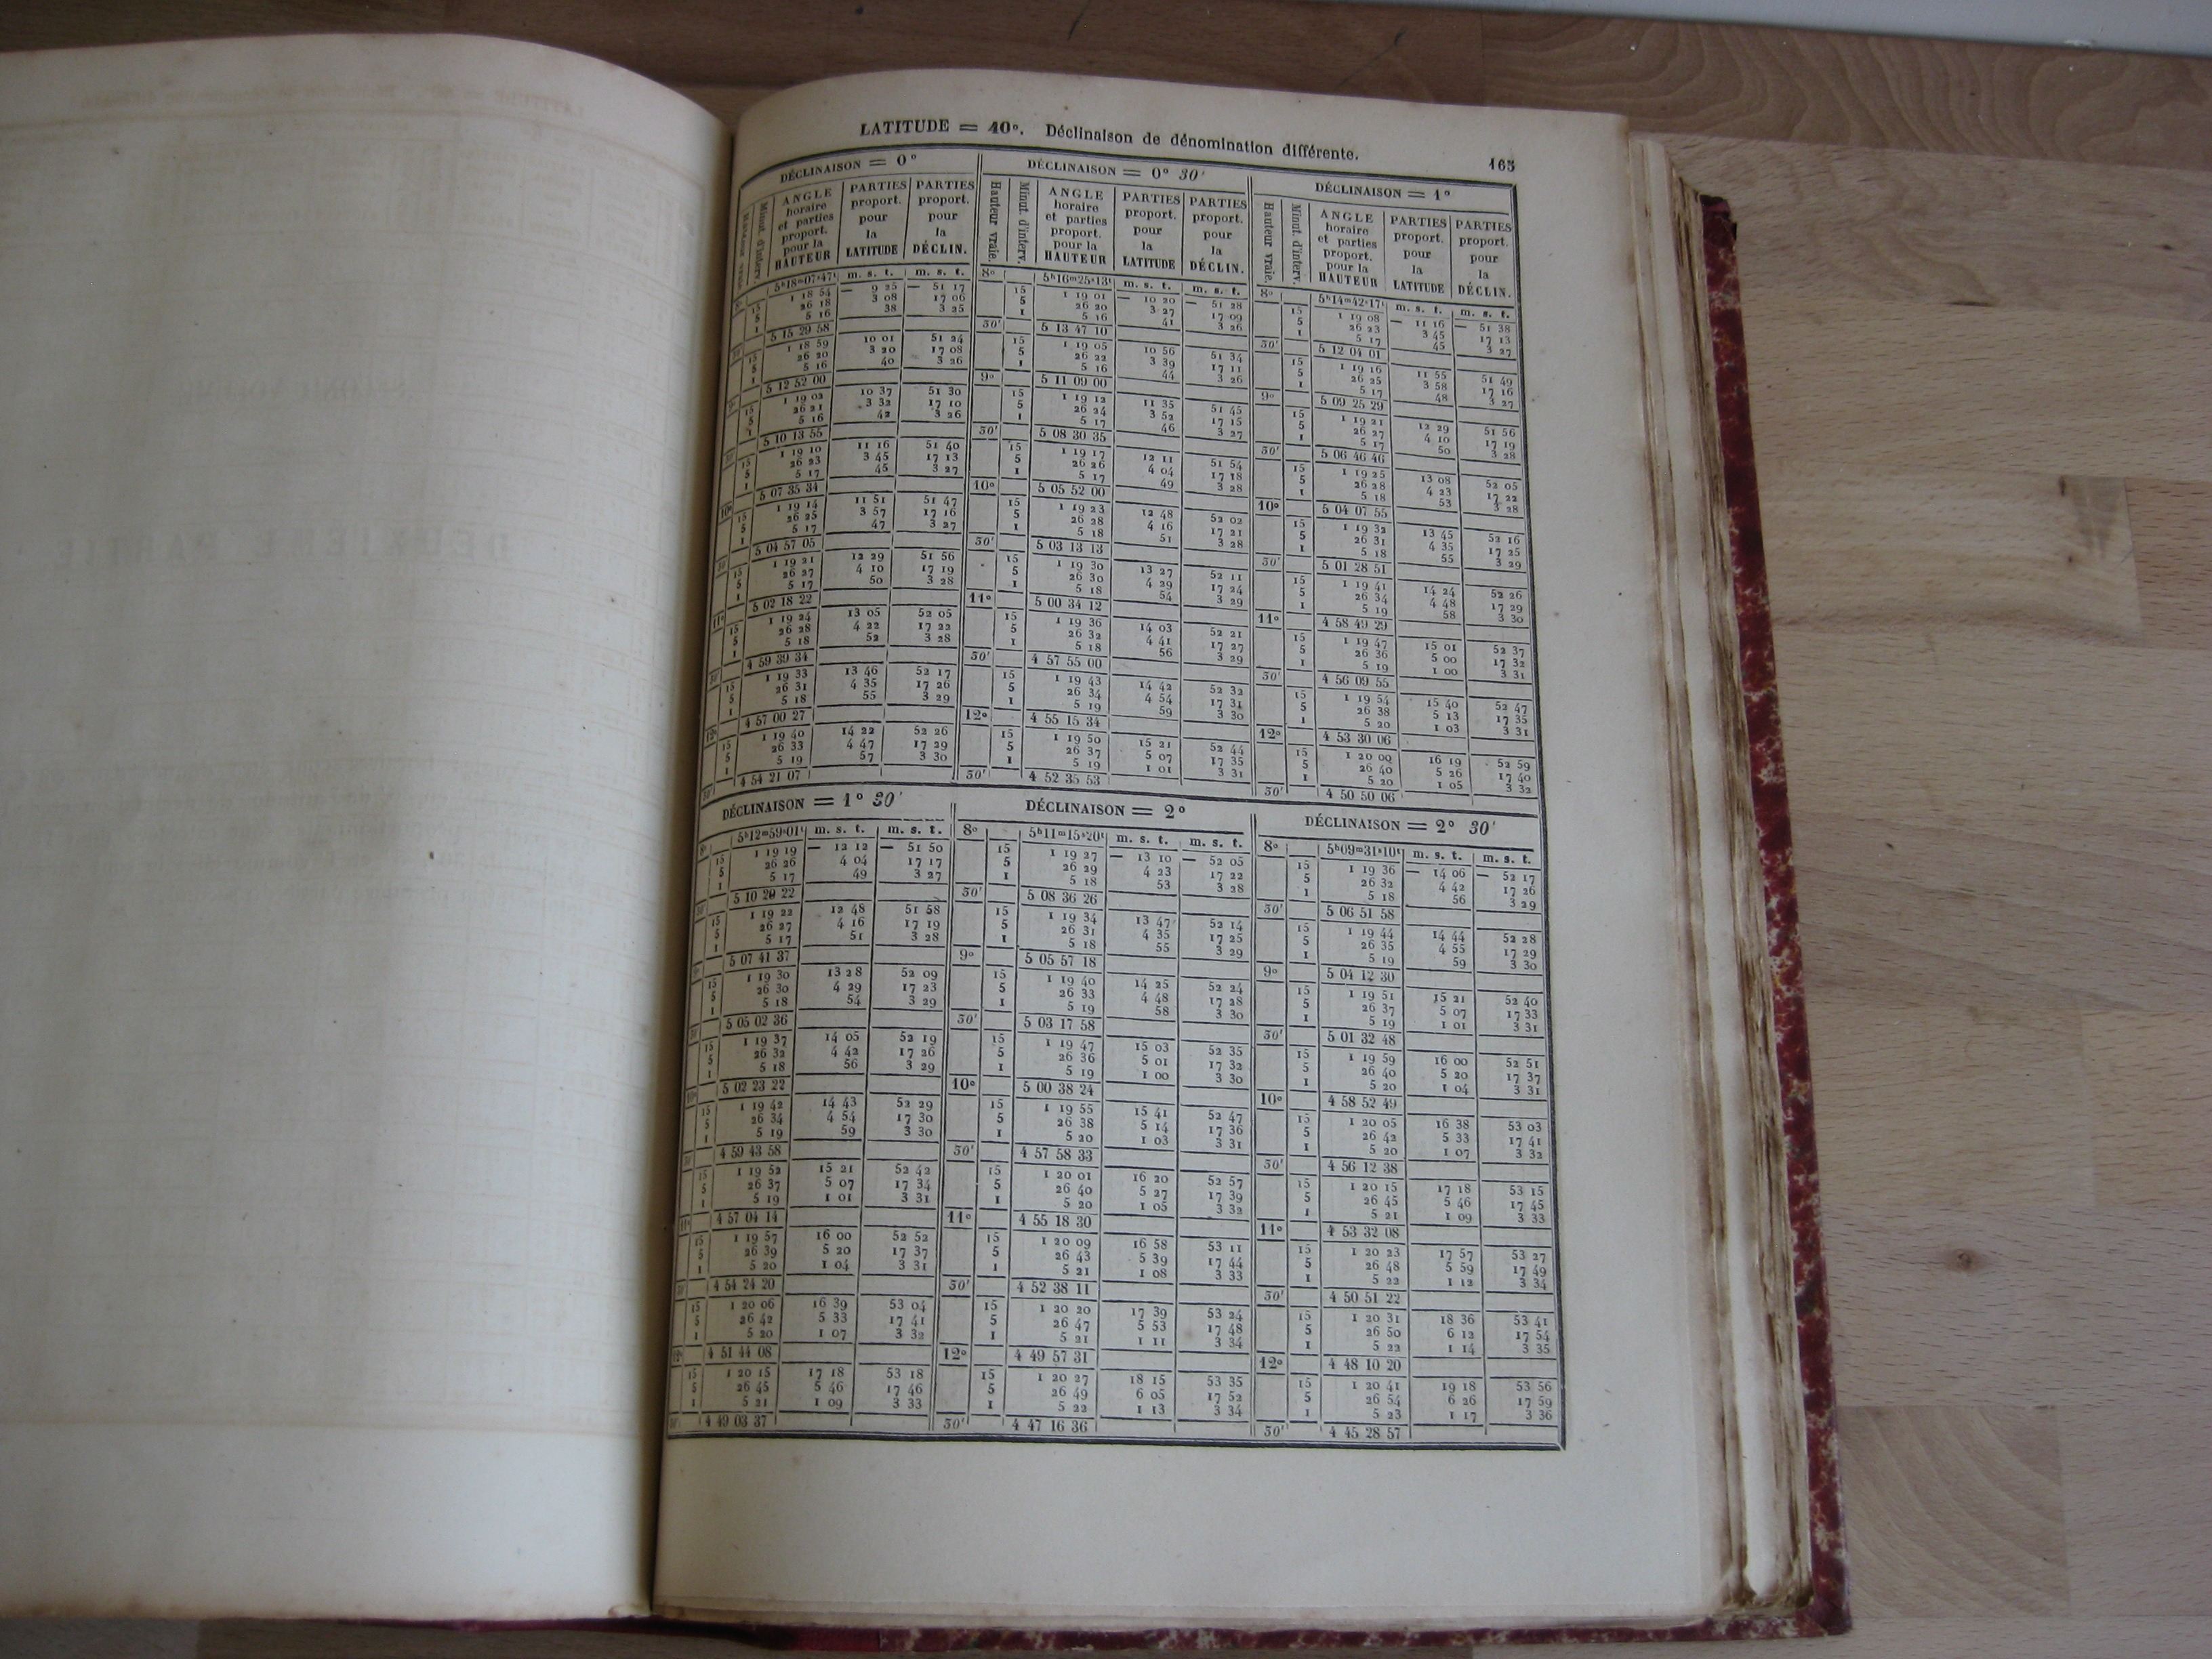 LATITUDE = 40°. Déclinaison de dénomination différente.
165
DÉCLINAISON = 0°
Minut. d'interv.
ANGLE horaire et parties proport. pour la HAUTEUR
PARTIES proport. pour la LATITUDE
PARTIES proport. pour la DÉCLIN.
5ʰ18ᵐ07ˢ47ᵗ m. s. t. m. s. t.
15 1 18 54 — 9 25 — 51 17
5 26 18 3 08 17 06
1 5 16 38 3 25
5 15 29 58
15 1 18 59 10 01 51 24
5 26 20 3 20 17 08
1 5 16 40 3 26
5 12 52 00
15 1 19 02 10 37 51 30
5 26 21 3 32 17 10
1 5 16 42 3 26
5 10 13 55
15 1 19 10 11 16 51 40
5 26 23 3 45 17 13
1 5 17 45 3 27
10° 5 07 35 34
15 1 19 14 11 51 51 47
5 26 25 3 57 17 16
1 5 17 47 3 27
5 04 57 05
15 1 19 21 12 29 51 56
5 26 27 4 10 17 19
1 5 17 50 3 28
11° 5 02 18 22
15 1 19 24 13 05 52 05
5 26 28 4 22 17 22
1 5 18 52 3 28
4 59 39 34
15 1 19 33 13 46 52 17
5 26 31 4 35 17 26
1 5 18 55 3 29
12° 4 57 00 27
15 1 19 40 14 22 52 26
5 26 33 4 47 17 29
1 5 19 57 3 30
30' 4 54 21 07
DÉCLINAISON = 0° 30'
Hauteur vraie.
Minut. d'interv.
ANGLE horaire et parties proport. pour la HAUTEUR
PARTIES proport. pour la LATITUDE
PARTIES proport. pour la DÉCLIN.
8° 5ʰ16ᵐ25ˢ13ᵗ m. s. t. m. s. t.
15 1 19 01 — 10 20 — 51 28
5 26 20 3 27 17 09
1 5 16 41 3 26
30' 5 13 47 10
15 1 19 05 10 56 51 34
5 26 22 3 39 17 11
1 5 16 44 3 26
9° 5 11 09 00
15 1 19 12 11 35 51 45
5 26 24 3 52 17 15
1 5 17 46 3 27
30' 5 08 30 35
15 1 19 17 12 11 51 54
5 26 26 4 04 17 18
1 5 17 49 3 28
10° 5 05 52 00
15 1 19 23 12 48 52 02
5 26 28 4 16 17 21
1 5 18 51 3 28
30' 5 03 13 13
15 1 19 30 13 27 52 11
5 26 30 4 29 17 24
1 5 18 54 3 29
11° 5 00 34 12
15 1 19 36 14 03 52 21
5 26 32 4 41 17 27
1 5 18 56 3 29
30' 4 57 55 00
15 1 19 43 14 42 52 32
5 26 34 4 54 17 31
1 5 19 59 3 30
12° 4 55 15 34
15 1 19 50 15 21 52 44
5 26 37 5 07 17 35
1 5 19 1 01 3 31
30' 4 52 35 53
DÉCLINAISON = 1°
Hauteur vraie.
Minut. d'interv.
ANGLE horaire et parties proport. pour la HAUTEUR
PARTIES proport. pour la LATITUDE
PARTIES proport. pour la DÉCLIN.
8° 5ʰ14ᵐ42ˢ17ᵗ m. s. t. m. s. t.
15 1 19 08 — 11 16 — 51 38
5 26 23 3 45 17 13
1 5 17 45 3 27
30' 5 12 04 01
15 1 19 16 11 55 51 49
5 26 25 3 58 17 16
1 5 17 48 3 27
9° 5 09 25 29
15 1 19 21 12 29 51 56
5 26 27 4 10 17 19
1 5 17 50 3 28
30' 5 06 46 46
15 1 19 25 13 08 52 05
5 26 28 4 23 17 22
1 5 18 53 3 28
10° 5 04 07 55
15 1 19 32 13 45 52 16
5 26 31 4 35 17 25
1 5 18 55 3 29
30' 5 01 28 51
15 1 19 41 14 24 52 26
5 26 34 4 48 17 29
1 5 19 58 3 30
11° 4 58 49 29
15 1 19 47 15 01 52 37
5 26 36 5 00 17 32
1 5 19 1 00 3 31
30' 4 56 09 55
15 1 19 54 15 40 52 47
5 26 38 5 13 17 35
1 5 20 1 03 3 31
12° 4 53 30 06
15 1 20 00 16 19 52 59
5 26 40 5 26 17 40
1 5 20 1 05 3 32
30' 4 50 50 06
DÉCLINAISON = 1° 30'
8° 5ʰ12ᵐ59ˢ01ᵗ m. s. t. m. s. t.
15 1 19 19 — 12 12 — 51 50
5 26 26 4 04 17 17
1 5 17 49 3 27
30' 5 10 20 22
15 1 19 22 12 48 51 58
5 26 27 4 16 17 19
1 5 17 51 3 28
5 07 41 37
15 1 19 30 13 28 52 09
5 26 30 4 29 17 23
1 5 18 54 3 29
5 05 02 36
15 1 19 37 14 05 52 19
5 26 32 4 42 17 26
1 5 18 56 3 29
10° 5 02 23 22
15 1 19 42 14 43 52 29
5 26 34 4 54 17 30
1 5 19 59 3 30
30' 4 59 43 58
15 1 19 52 15 21 52 42
5 26 37 5 07 17 34
1 5 19 1 01 3 31
11° 4 57 04 14
15 1 19 57 16 00 52 52
5 26 39 5 20 17 37
1 5 20 1 04 3 31
30' 4 54 24 20
15 1 20 06 16 39 53 04
5 26 42 5 33 17 41
1 5 20 1 07 3 32
12° 4 51 44 08
15 1 20 15 17 18 53 18
5 26 45 5 46 17 46
1 5 21 1 09 3 33
30' 4 49 03 37
DÉCLINAISON = 2°
8° 5ʰ11ᵐ15ˢ20ᵗ m. s. t. m. s. t.
15 1 19 27 — 13 10 — 52 05
5 26 29 4 23 17 22
1 5 18 53 3 28
30' 5 08 36 26
15 1 19 34 13 47 52 14
5 26 31 4 35 17 25
1 5 18 55 3 29
9° 5 05 57 18
15 1 19 40 14 25 52 24
5 26 33 4 48 17 28
1 5 19 58 3 30
30' 5 03 17 58
15 1 19 47 15 03 52 35
5 26 36 5 01 17 32
1 5 19 1 00 3 30
10° 5 00 38 24
15 1 19 55 15 41 52 47
5 26 38 5 14 17 36
1 5 20 1 03 3 31
30' 4 57 58 33
15 1 20 01 16 20 52 57
5 26 40 5 27 17 39
1 5 20 1 05 3 32
11° 4 55 18 30
15 1 20 09 16 58 53 11
5 26 43 5 39 17 44
1 5 21 1 08 3 33
30' 4 52 38 11
15 1 20 20 17 39 53 24
5 26 47 5 53 17 48
1 5 21 1 11 3 34
12° 4 49 57 31
15 1 20 27 18 15 53 35
5 26 49 6 05 17 52
1 5 22 1 13 3 34
30' 4 47 16 36
DÉCLINAISON = 2° 30'
8° 5ʰ09ᵐ31ˢ10ᵗ m. s. t. m. s. t.
15 1 19 36 — 14 06 — 52 17
5 26 32 4 42 17 26
1 5 18 56 3 29
30' 5 06 51 58
15 1 19 44 14 44 52 28
5 26 35 4 55 17 29
1 5 19 59 3 30
9° 5 04 12 30
15 1 19 51 15 21 52 40
5 26 37 5 07 17 33
1 5 19 1 01 3 31
30' 5 01 32 48
15 1 19 59 16 00 52 51
5 26 40 5 20 17 37
1 5 20 1 04 3 31
10° 4 58 52 49
15 1 20 05 16 38 53 03
5 26 42 5 33 17 41
1 5 20 1 07 3 32
30' 4 56 12 38
15 1 20 15 17 18 53 15
5 26 45 5 46 17 45
1 5 21 1 09 3 33
11° 4 53 32 08
15 1 20 23 17 57 53 27
5 26 48 5 59 17 49
1 5 22 1 12 3 34
30' 4 50 51 22
15 1 20 31 18 36 53 41
5 26 50 6 12 17 54
1 5 22 1 14 3 35
12° 4 48 10 20
15 1 20 41 19 18 53 56
5 26 54 6 26 17 59
1 5 23 1 17 3 36
30' 4 45 28 57